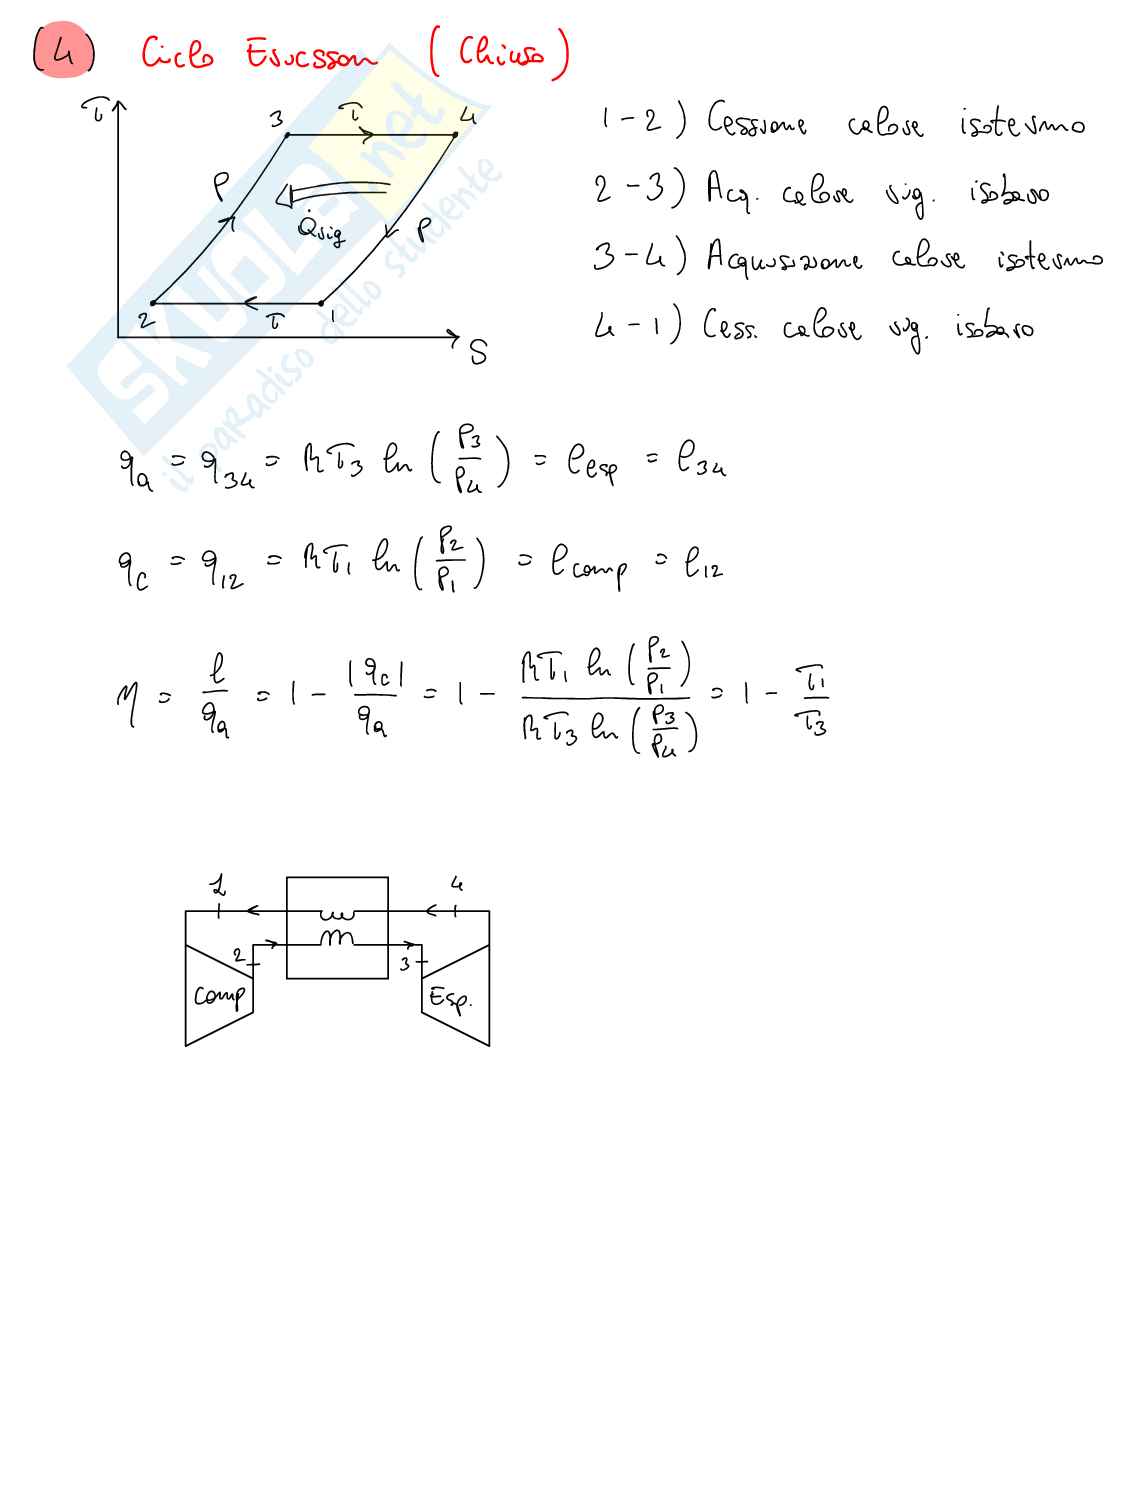 (4) Ciclo Ericsson (Chiuso)
T
3
T
4
P
Q̇rig
P
2
T
1
S
1-2) Cessione calore isotermo
2-3) Acq. calore rig. isobaro
3-4) Acquisizione calore isotermo
4-1) Cess. calore rig. isobaro
SKUOLA.net
il paradiso dello studente
qa = q34 = RT3 ln (P3/P4) = lesp = l34
qc = q12 = RT1 ln (P2/P1) = lcomp = l12
η = l/qa = 1 - |qc|/qa = 1 - RT1 ln (P2/P1) / RT3 ln (P3/P4) = 1 - T1/T3
1
4
2
3
Comp
Esp.